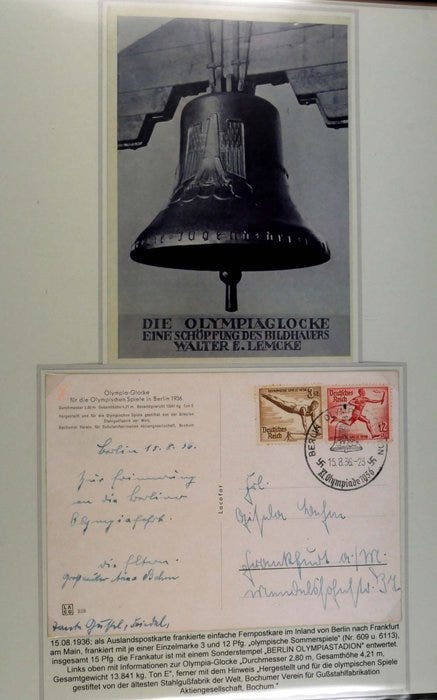 DIE OLYMPIAGLOCKE
EINE SCHÖPFUNG DES BILDHAUERS
WALTER E. LEMCKE
Olympia-Glocke
für die Olympischen Spiele in Berlin 1936
Durchmesser 2,80 m Gesamthöhe 4,21 m Gesamtgewicht 13841 kg Ton E
Hergestellt und für die Olympischen Spiele gestiftet von der ältesten
Gußstahlfabrik der Welt,
Bochumer Verein für Gußstahlfabrikation Aktiengesellschaft, Bochum
Deutsches
Reich
Deutsches
Reich
BERLIN
15.8.36.-23
XI. Olympiade 1936
Berlin 15.8.36.
Zur Erinnerung
an die Berliner
Olympiafahrt.
die Eltern
Lacofot
Frl.
Frankfurt a/M.
LACO
15.08.1936; als Auslandspostkarte frankierte einfache Fernpostkarte im Inland von Berlin nach Frankfurt
am Main, frankiert mit je einer Einzelmarke 3 und 12 Pfg. „olympische Sommerspiele" (Nr. 609 u. 6113),
insgesamt 15 Pfg. die Frankatur ist mit einem Sonderstempel „BERLIN OLYMPIASTADION" entwertet.
Links oben mit Informationen zur Olympia-Glocke „Durchmesser 2,80 m, Gesamthöhe 4,21 m,
Gesamtgewicht 13.841 kg, Ton E", ferner mit dem Hinweis „Hergestellt und für die olympischen Spiele
gestiftet von der ältesten Stahlgußfabrik der Welt, Bochumer Verein für Gußstahlfabrikation
Aktiengesellschaft, Bochum."